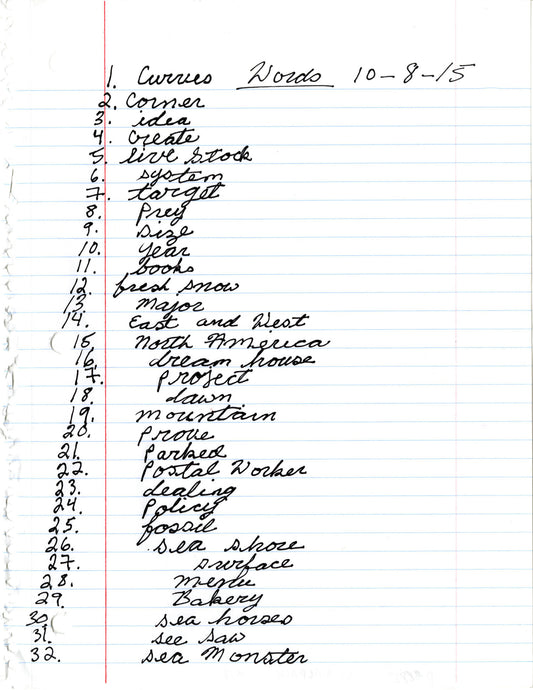 1. Curves Words 10-8-15
2. Corner
3. idea
4. Create
5. live Stock
6. system
7. target
8. Prey
9. size
10. year
11. books
12. fresh snow
13. Major
14. East and West
15. North America
16. dream house
17. Project
18. dawn
19. mountain
20. Prove
21. Parked
22. Postal Worker
23. dealing
24. Policy
25. fossil
26. sea shore
27. surface
28. menu
29. Bakery
30. sea horses
31. see saw
32. sea Monster